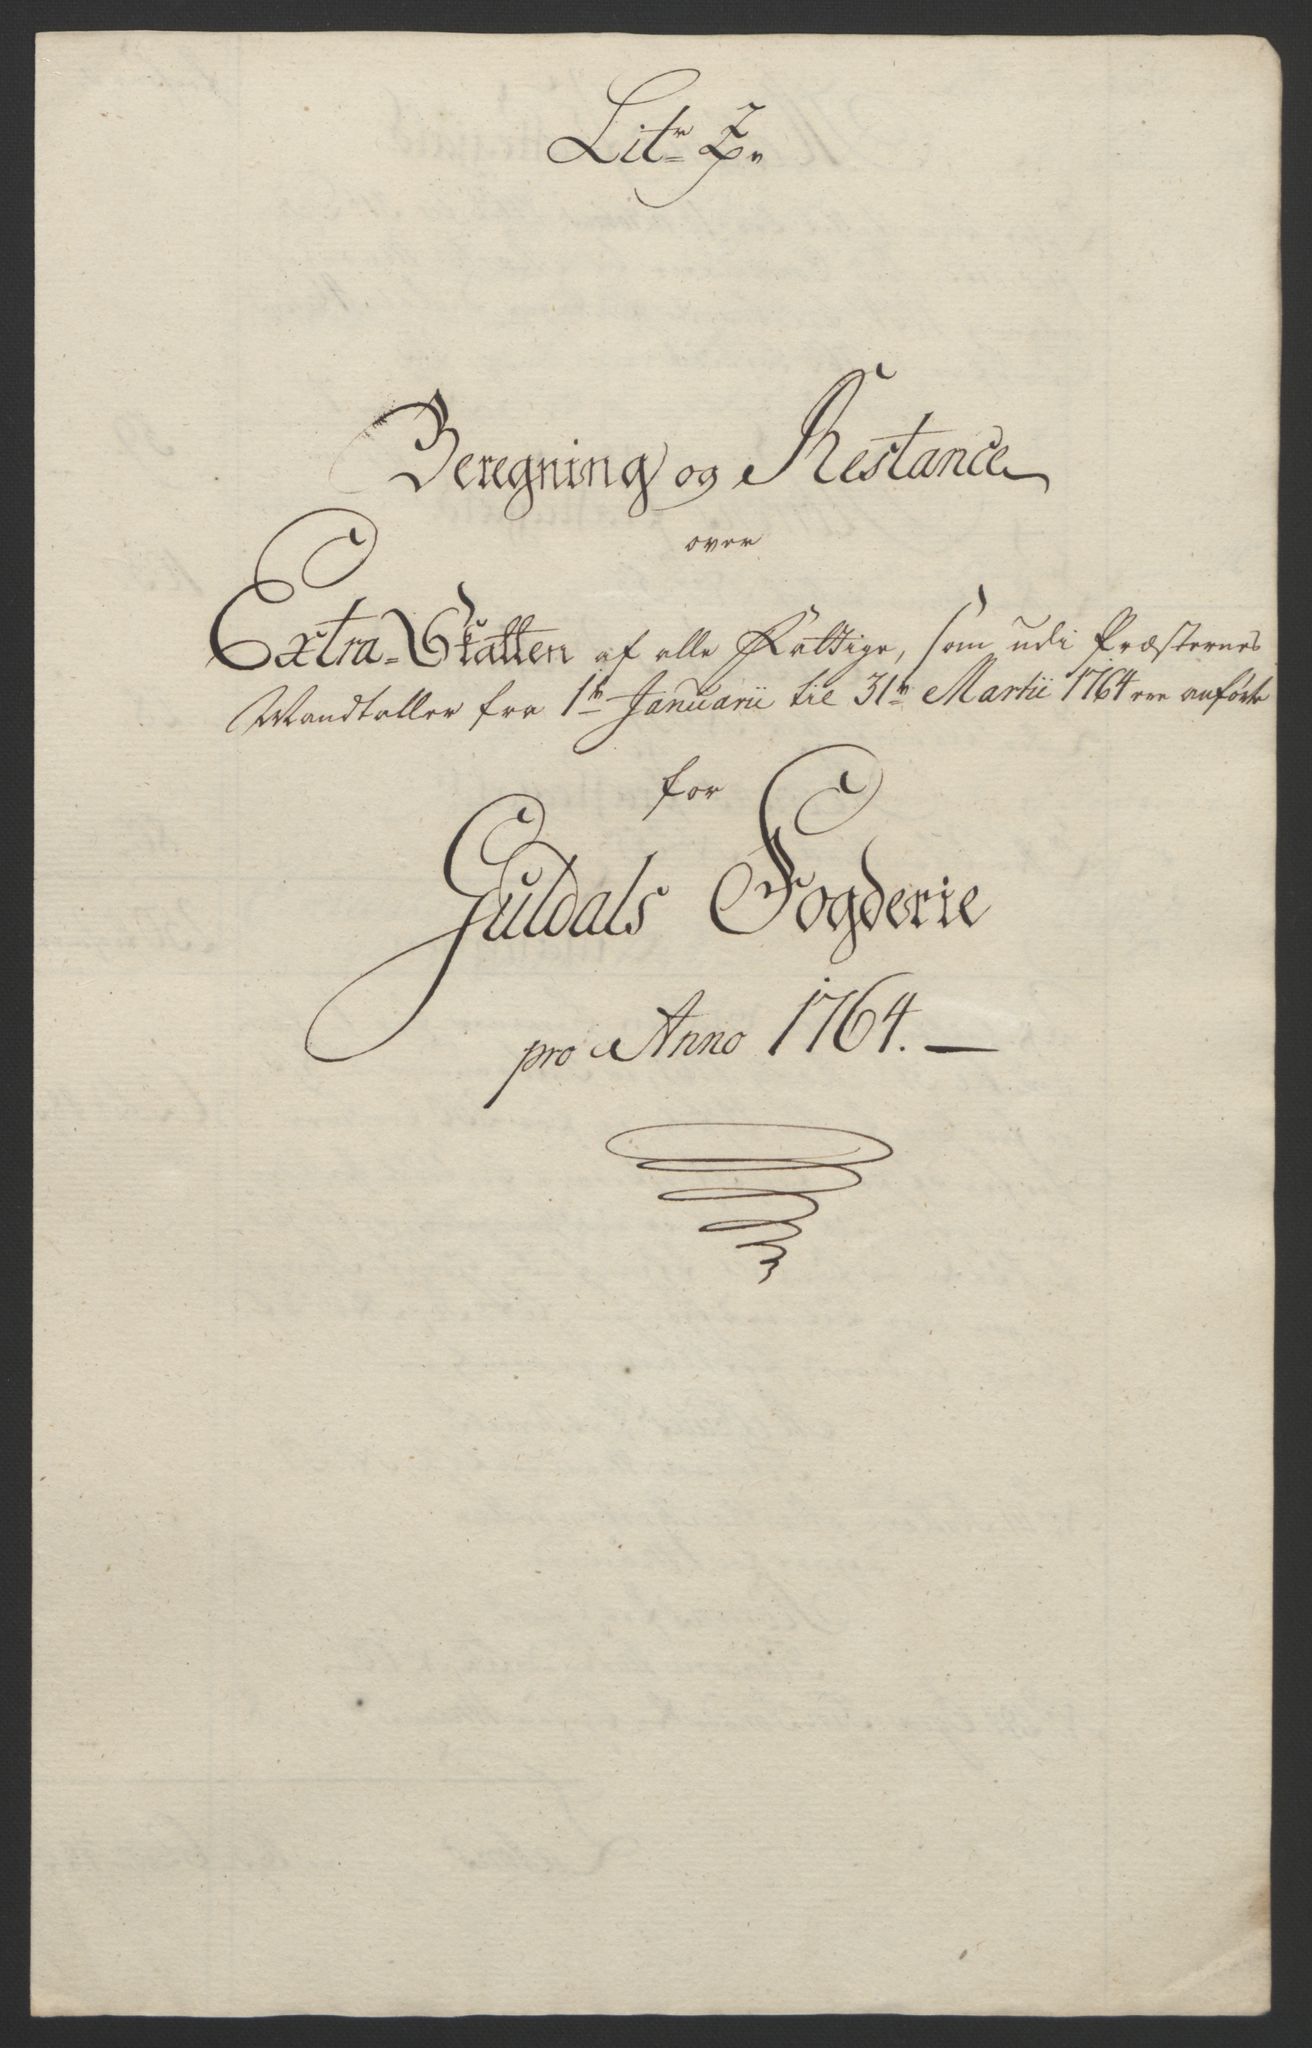 Litr Z.
Beregning og Restance
over
Extra-Skatten af alle Fattige, som udi Præsternes
Mandtaller fra 1te Januarii til 31te Martii 1764 ere anførte
for
Guldals Fogderie
pro Anno 1764.